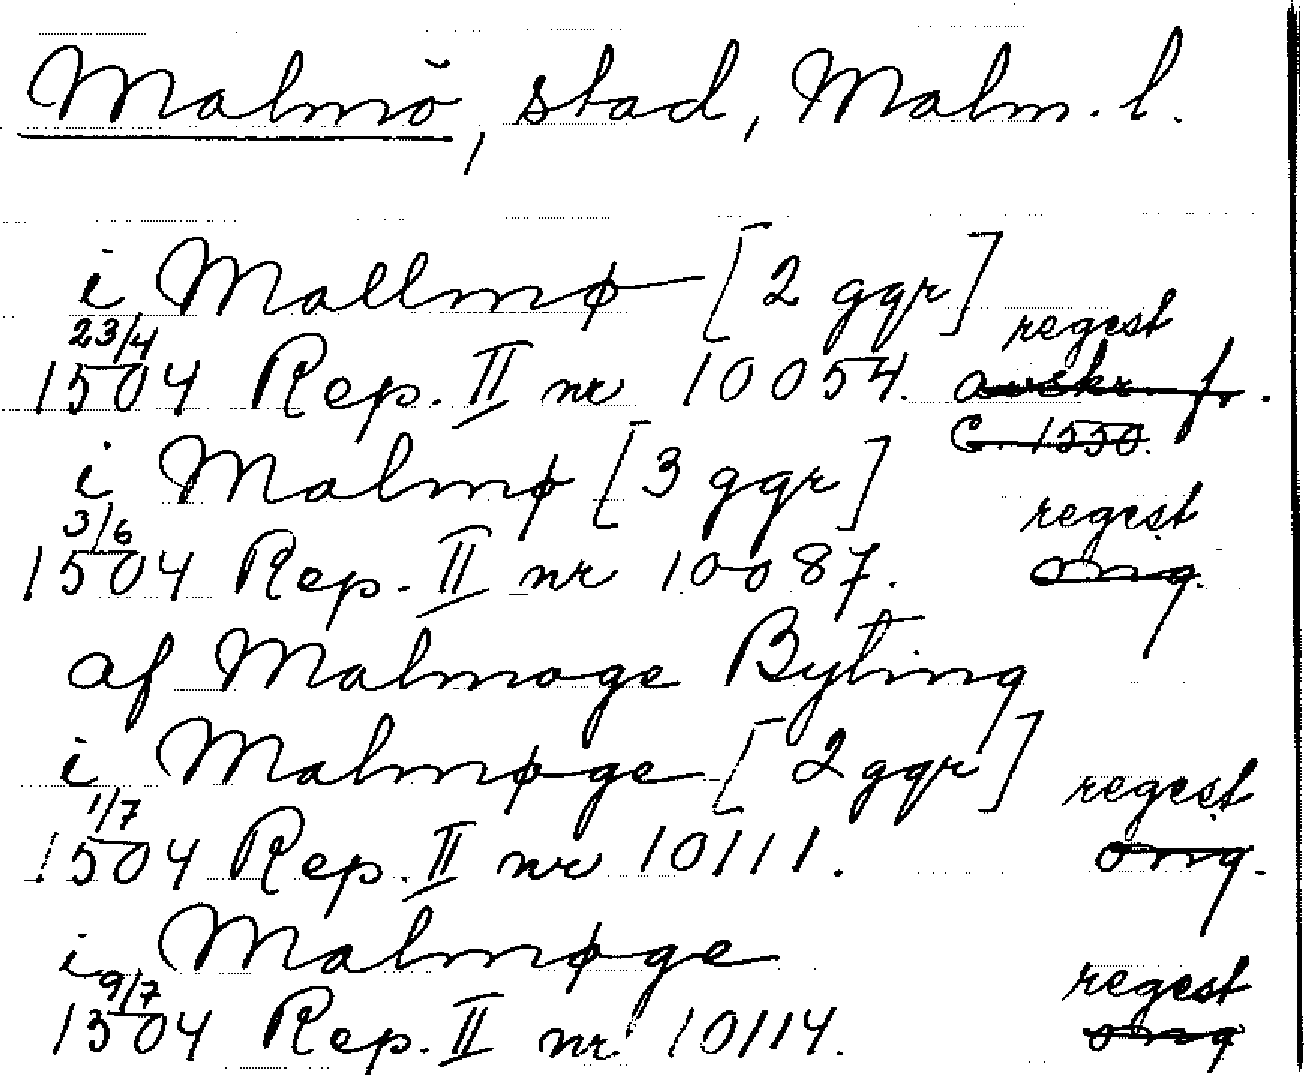 Malmö, stad, Malm. l.
i Mallmø [2 ggr]
23/4 regest
1504 Rep. II nr 10054. avskr. fr.
C. 1550.
i Malmø [3 ggr]
3/6 regest
1504 Rep. II nr 10087. orig.
af Malmoge Byting
i Malmøge [2 ggr]
1/7 regest
1504 Rep. II nr 10111. orig.
i Malmøge
9/7 regest
1504 Rep. II nr 10114. orig